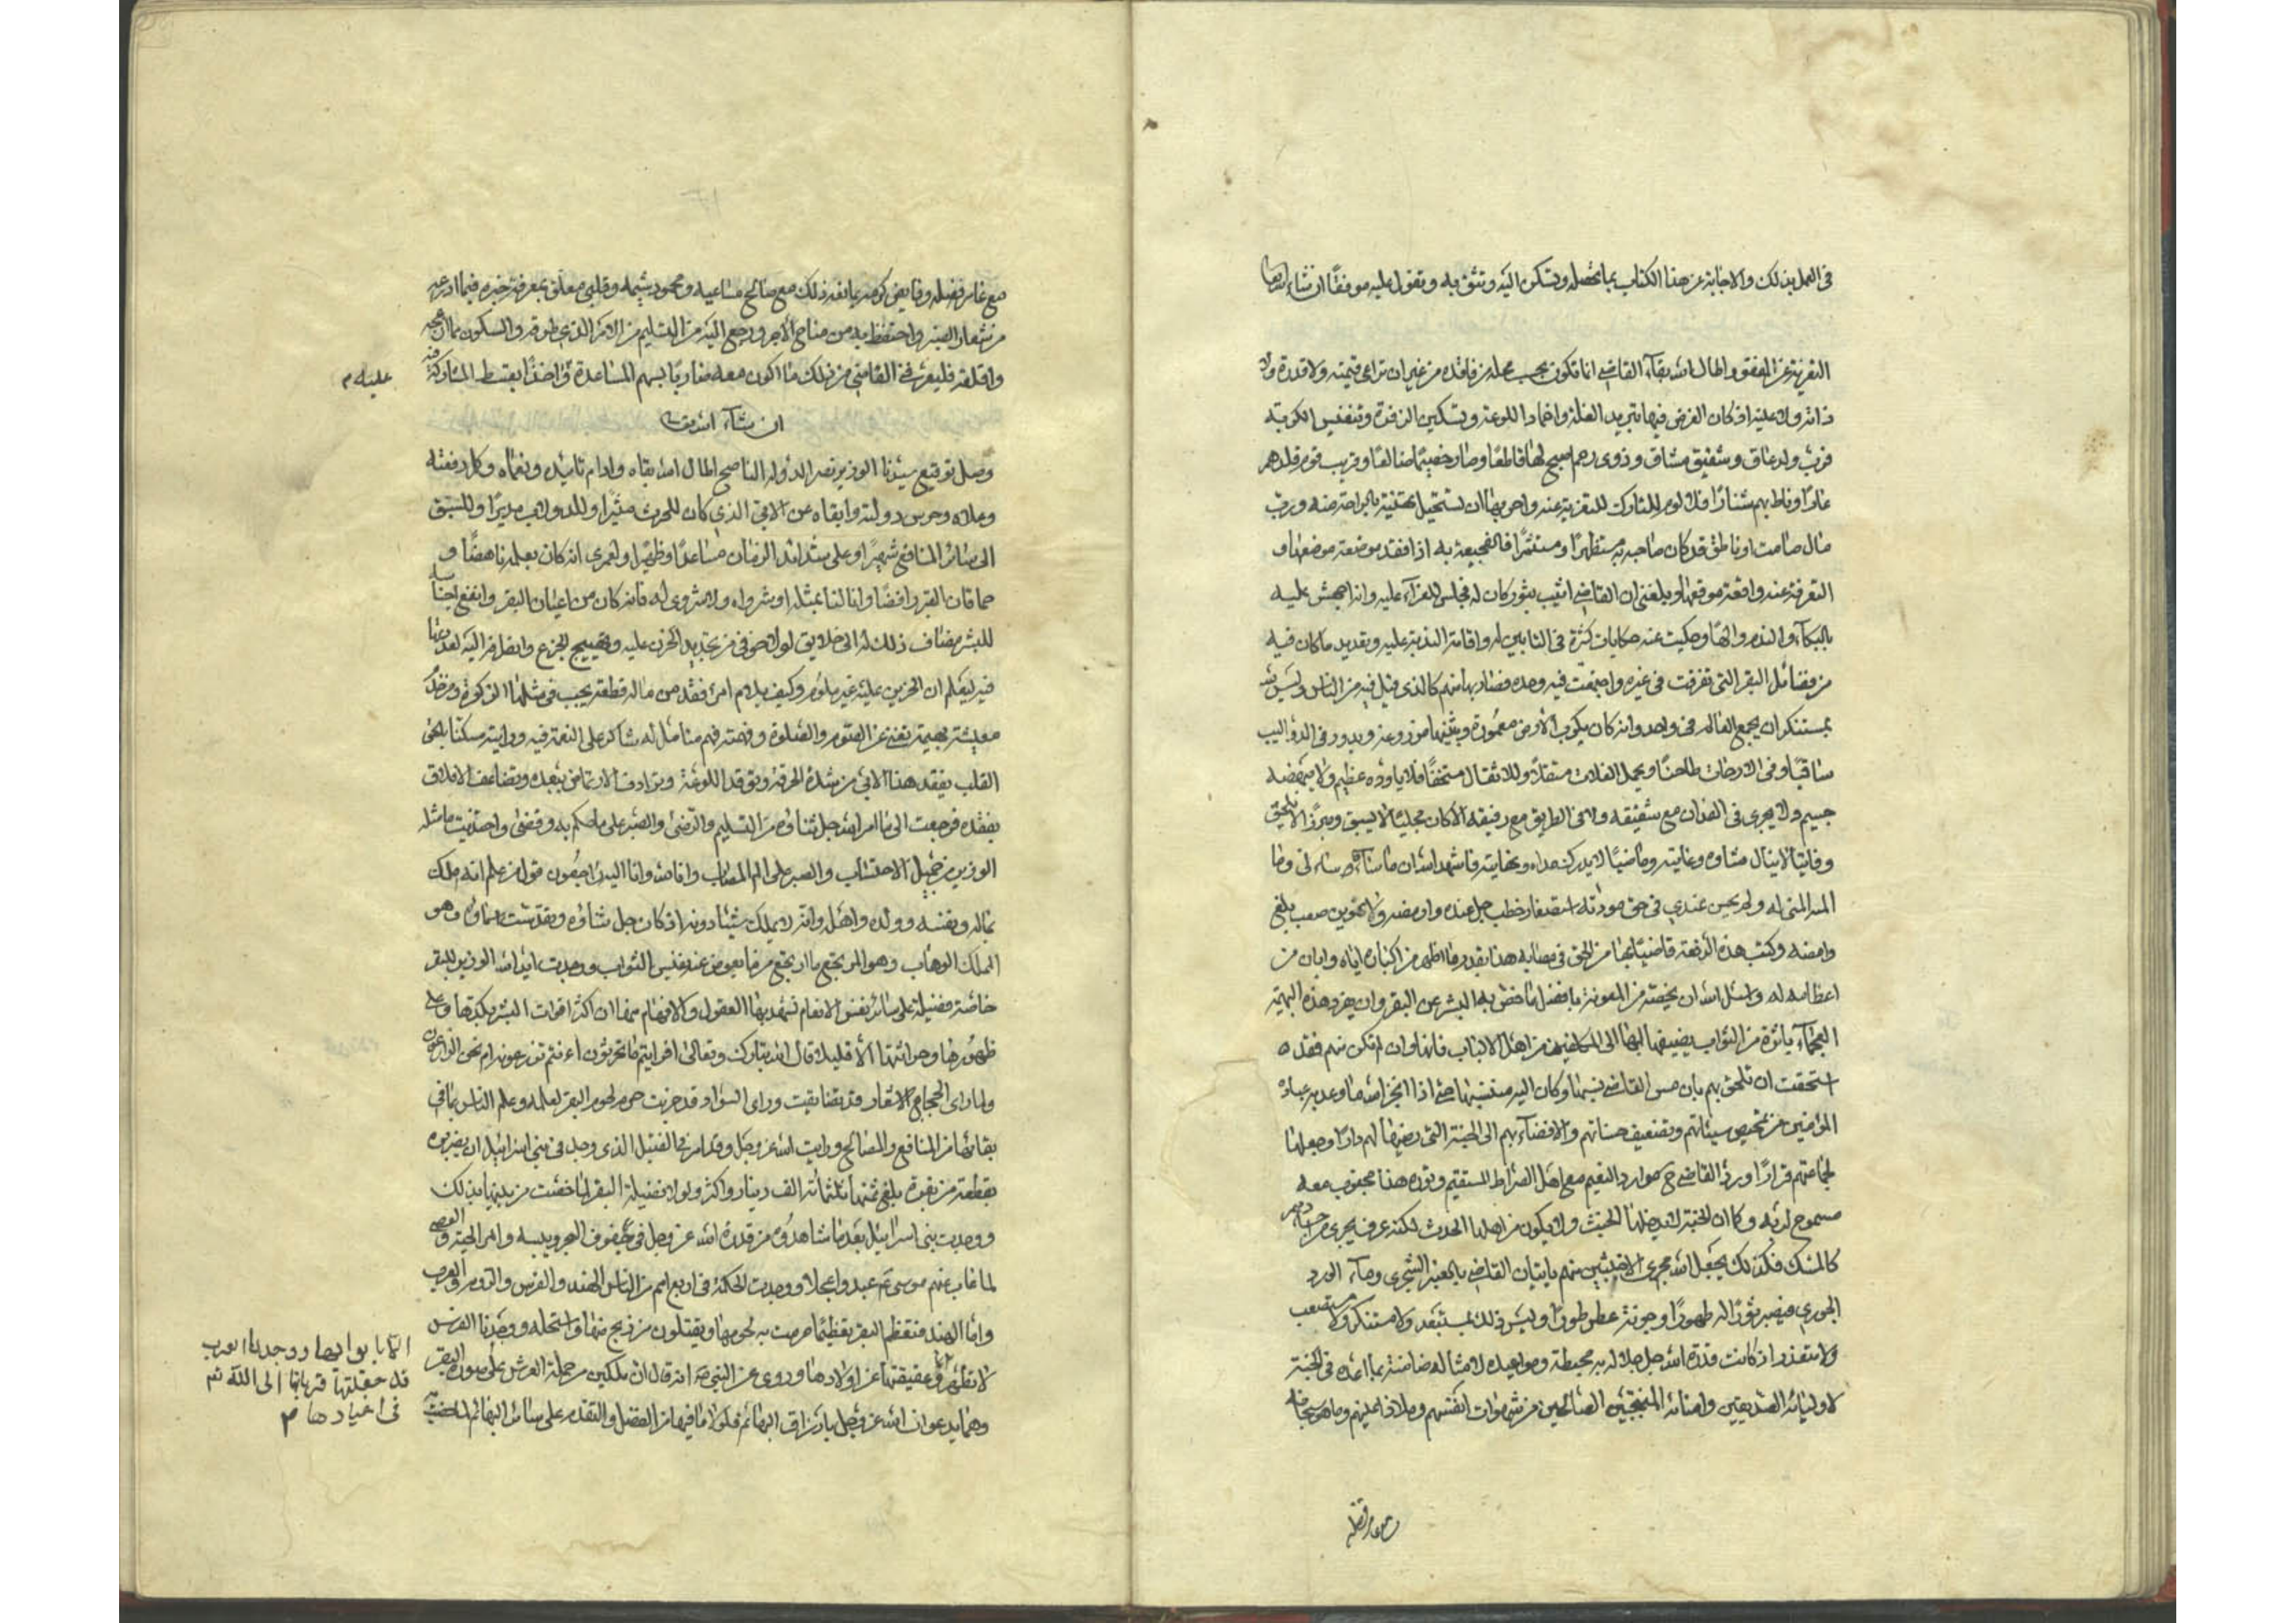 في العمل بذلك والاجابة عن هذا الكتاب بما تحصله وتسكن اليه وتثق به وتعول عليه موفقا ان شاء الله تعا
التعزية عن المفقود اطال الله بقآء القاضي انما تكون بحسب محله من فاقده من غير ان تراعى قيمته ولا قدره ولا
ذاته ولا عليه اذ كان الغرض فيها تبريد الغلة واخماد اللوعة وتسكين الزفرة وتنفيس الكربة
فرب ولد عاق وشقيق مشاق وذوى رحم اصبح لها قاطعا وصار خصيما وقريب قوم قلدهم
عارا وناط بهم شنارا فلا لوم للتارك للتعزية عنه واحر بها ان تستحيل تهنية بالراحة منه ورب
مال صامت او ناطق قد كان صاحبه به مستظهرا ومستثمرا فالفجيعة به اذا فقد موضعة موضعها و
التعزية عنه واقعة موقعها وبلغني ان القاضي اثيب بثور كان له فجلس للعزآء عليه وانه اجهش عليه
بالبكآء والتدم والها وحكيت عنه حكايات كثرة في التابين له واقامة الندبة عليه وتعديد ما كان فيه
من فضائل البقر التي تفرقت في غيره واجتمعت فيه وحده فصار بها منهم كالذي قيل فيه من الناس وليس لله
بمستنكر ان يجمع العالم في واحد وانه كان يكرب الارض معمورة ويثيرها مزروعة ويدور في الدواليب
ساقيا وفي الارحاآت طاحنا ويحمل الغلات مستقلا وللاثقال مستخفا فلا ياوده عظيم ولا يبهضه
جسيم ولا يجرى في الفدان مع شقيقه ولا في الطريق مع رفيقه الا كان مجليا لا يسبق ومبرزا لا يلحق
وفايتا لا ينال شاوه وغايته وماضيا لا يدرك مداه ونهايته فاشهد الله ان ما ساءه ساءني وما
المه المني له ولم يحسن عندي في حق مودته استصغار خطب جل عنده وارمضه ولا تهوين صعب بلغ
وامضه وكتبت هذه الرقعة قاضيا بها من الحق في مصابه هذا بقدر ما اظهر من اكباره اياه وابان من
اعظامه له واسئل الله ان يخصه من المعونة بافضل ما خص به البشر عن البقر وان يفرد هذه البهيمة
العجمآء باثرة من الثواب يضيفها بها الى المكلفين من اهل الالباب فانها وان لم تكن منهم فقد
استحقت ان تلحق بهم بان مس القاضي سببها وكان اليه منتسبها حتى اذا انجز الله ما وعد به عباده
المؤمنين من تمحيص سيئاتهم وتضعيف حسناتهم والافضآء بهم الى الجنة التي رضيها لهم دارا وجعلها
لجماعتهم قرارا ورد القاضي ح موارد النعيم مع اهل الصراط المستقيم وثوره هذا مجنوب معه
مسموح له به وكما ان الجنة لا يدخلها الخبث ولا يكون من اهلها الحدث لكنه عرق يجرى من اجسادهم
كالمسك فكذلك يجعل الله مجرى الاخبثين منهم باتيان القاضي بالعنبر الشجرى ومآء الورد
الجورى فيصير ثورا له طهورا وجونة عطر طورا وليس ذلك بمستبعد ولا مستنكر ولا مستصعب
ولا متعذر اذ كانت قدرة الله جل جلاله به محيطة ومواعيده لامثاله ضامنة بما اعده في الجنة
لاوليائه الصديقين وامنائه المنتجبين الصالحين من شهوات انفسهم وملاذ اعينهم وما هو سبحانه
مع غامر فضله
مع غامر فضله وفايض كرمه بمانعه ذلك مع صالح مساعيه ومحمود شيمه وقلبي معلق بمعرفة خبره فيما ادرعه
من شعار الصبر واحتفظ به من مناجح الاجر ورجع اليه من التسليم من الامر الذي طرقه والسكون مما ازعجه
واقلقه فليعرفني القاضي من ذلك ما اكون معه ضاربا بسهم المساعدة واخذا بقسط المشاركة فيه
عليه م
ان شآء الله تعالى
وصل توقيع سيدنا الوزير نصر الدولة الناصح اطال الله بقاه وادام تاييده ونعماه وكل رفعته
وعلاه وحرس دولته وابقاه عن الابي الذي كان للحرث مثيرا وللدولاب مديرا وللسبق
الى سائر المنافع شهيرا وعلى شدائد الزمان مساعدا وظهيرا ولعمرى انه كان بعمله ناهضا و
حماقات البقر رافضا وانا لنا بمثله او شرواه ولا شروى له فانه كان من اعيان البقر وانفع اجناسه
للبشر مضاف ذلك له الى خلايق لولا خوفي من تجديد الحزن عليه وتهييج الجزع وانصرافه اليه لعددتها
فيه ليعلم ان الحزين عليه غير ملوم وكيف يلام امرء فقد من ماله قطعة يجب في مثلها الزكوة ومن خدم
معيشته بهيمة تعينه عن الصوم والصلوة وفهمته فهم متامل له شاكر على النعمة فيه ورايته مسكنا بلغ
القلب بفقد هذا الابي من شدة الحرقة وتوقد اللوعة وترادف الارتماض ببعده وتضاعف الاقلاق
بفقده فرجعت الى ما امر الله جل ثناؤه من التسليم والرضى والصبر على ما حكم به وقضى واحتذيت ما مثله
الوزير من جميل الاحتساب والصبر على الم المصاب وانا لله وانا اليه راجعون قول من علم انه املك
بماله ونفسه وولده واهله وانه لا يملك شيئا دونه اذ كان جل ثناؤه وتقدست اسماؤه هو
الملك الوهاب وهو المرتجع ما ارتجع مرفا يعوض عنه نفيس الثواب ووجدت ايد الله الوزير للبقر
خاصة فضيلة على سائر نفس الانعام تشهد بها العقول والافهام منها ان اكثر اقوات البشر بكدها وعلى
ظهورها وحراثتها الا قليلا قال الله تبارك وتعالى افرايتم ما تحرثون ءانتم تزرعونه ام نحن الزارعون
ولما راى الحجاج الاسعار قد تضايقت وراى السواد قد خربت حرم لحوم البقر لعلمه وعلم الناس بما في
بقائها من المنافع والمصالح ورايت الله عز وجل قد امر في القتيل الذي وجد في بني اسرائيل ان يضربوه
بقطعة من بقرة بلغ ثمنها ثلثمائة الف دينار واكثر ولولا فضيلة البقر لما خصت من بينها بذلك
ووجدت بني اسرائيل بعد ما شاهدوه من قدرة الله عز وجل في جفوف البحر ويبسه وامر الحية والعصى
لما غاب عنهم موسى عم عبدوا عجلا ووجدت الحكمة في اربع امم من الناس الهند والفرس والروم والعرب
واما الهند فتعظم البقر تعظيما حرمت به لحومها ويقتلون من ذبح منها واستحله ووجدنا الفرس
لا تطهر في عقيقتها عن اولادها وروى عن النبي صه انه قال ان ملكين من حملة العرش على صورة البقر
وهما يدعوان الله عز وجل بادزاق البهائم فلولا ما فيها من الفضل والتقدم على سائر البهائم لما خصت به
الا بابوالها ووجدنا العرب
قد جعلتها قربانها الى الله ثم
في اعيادها م